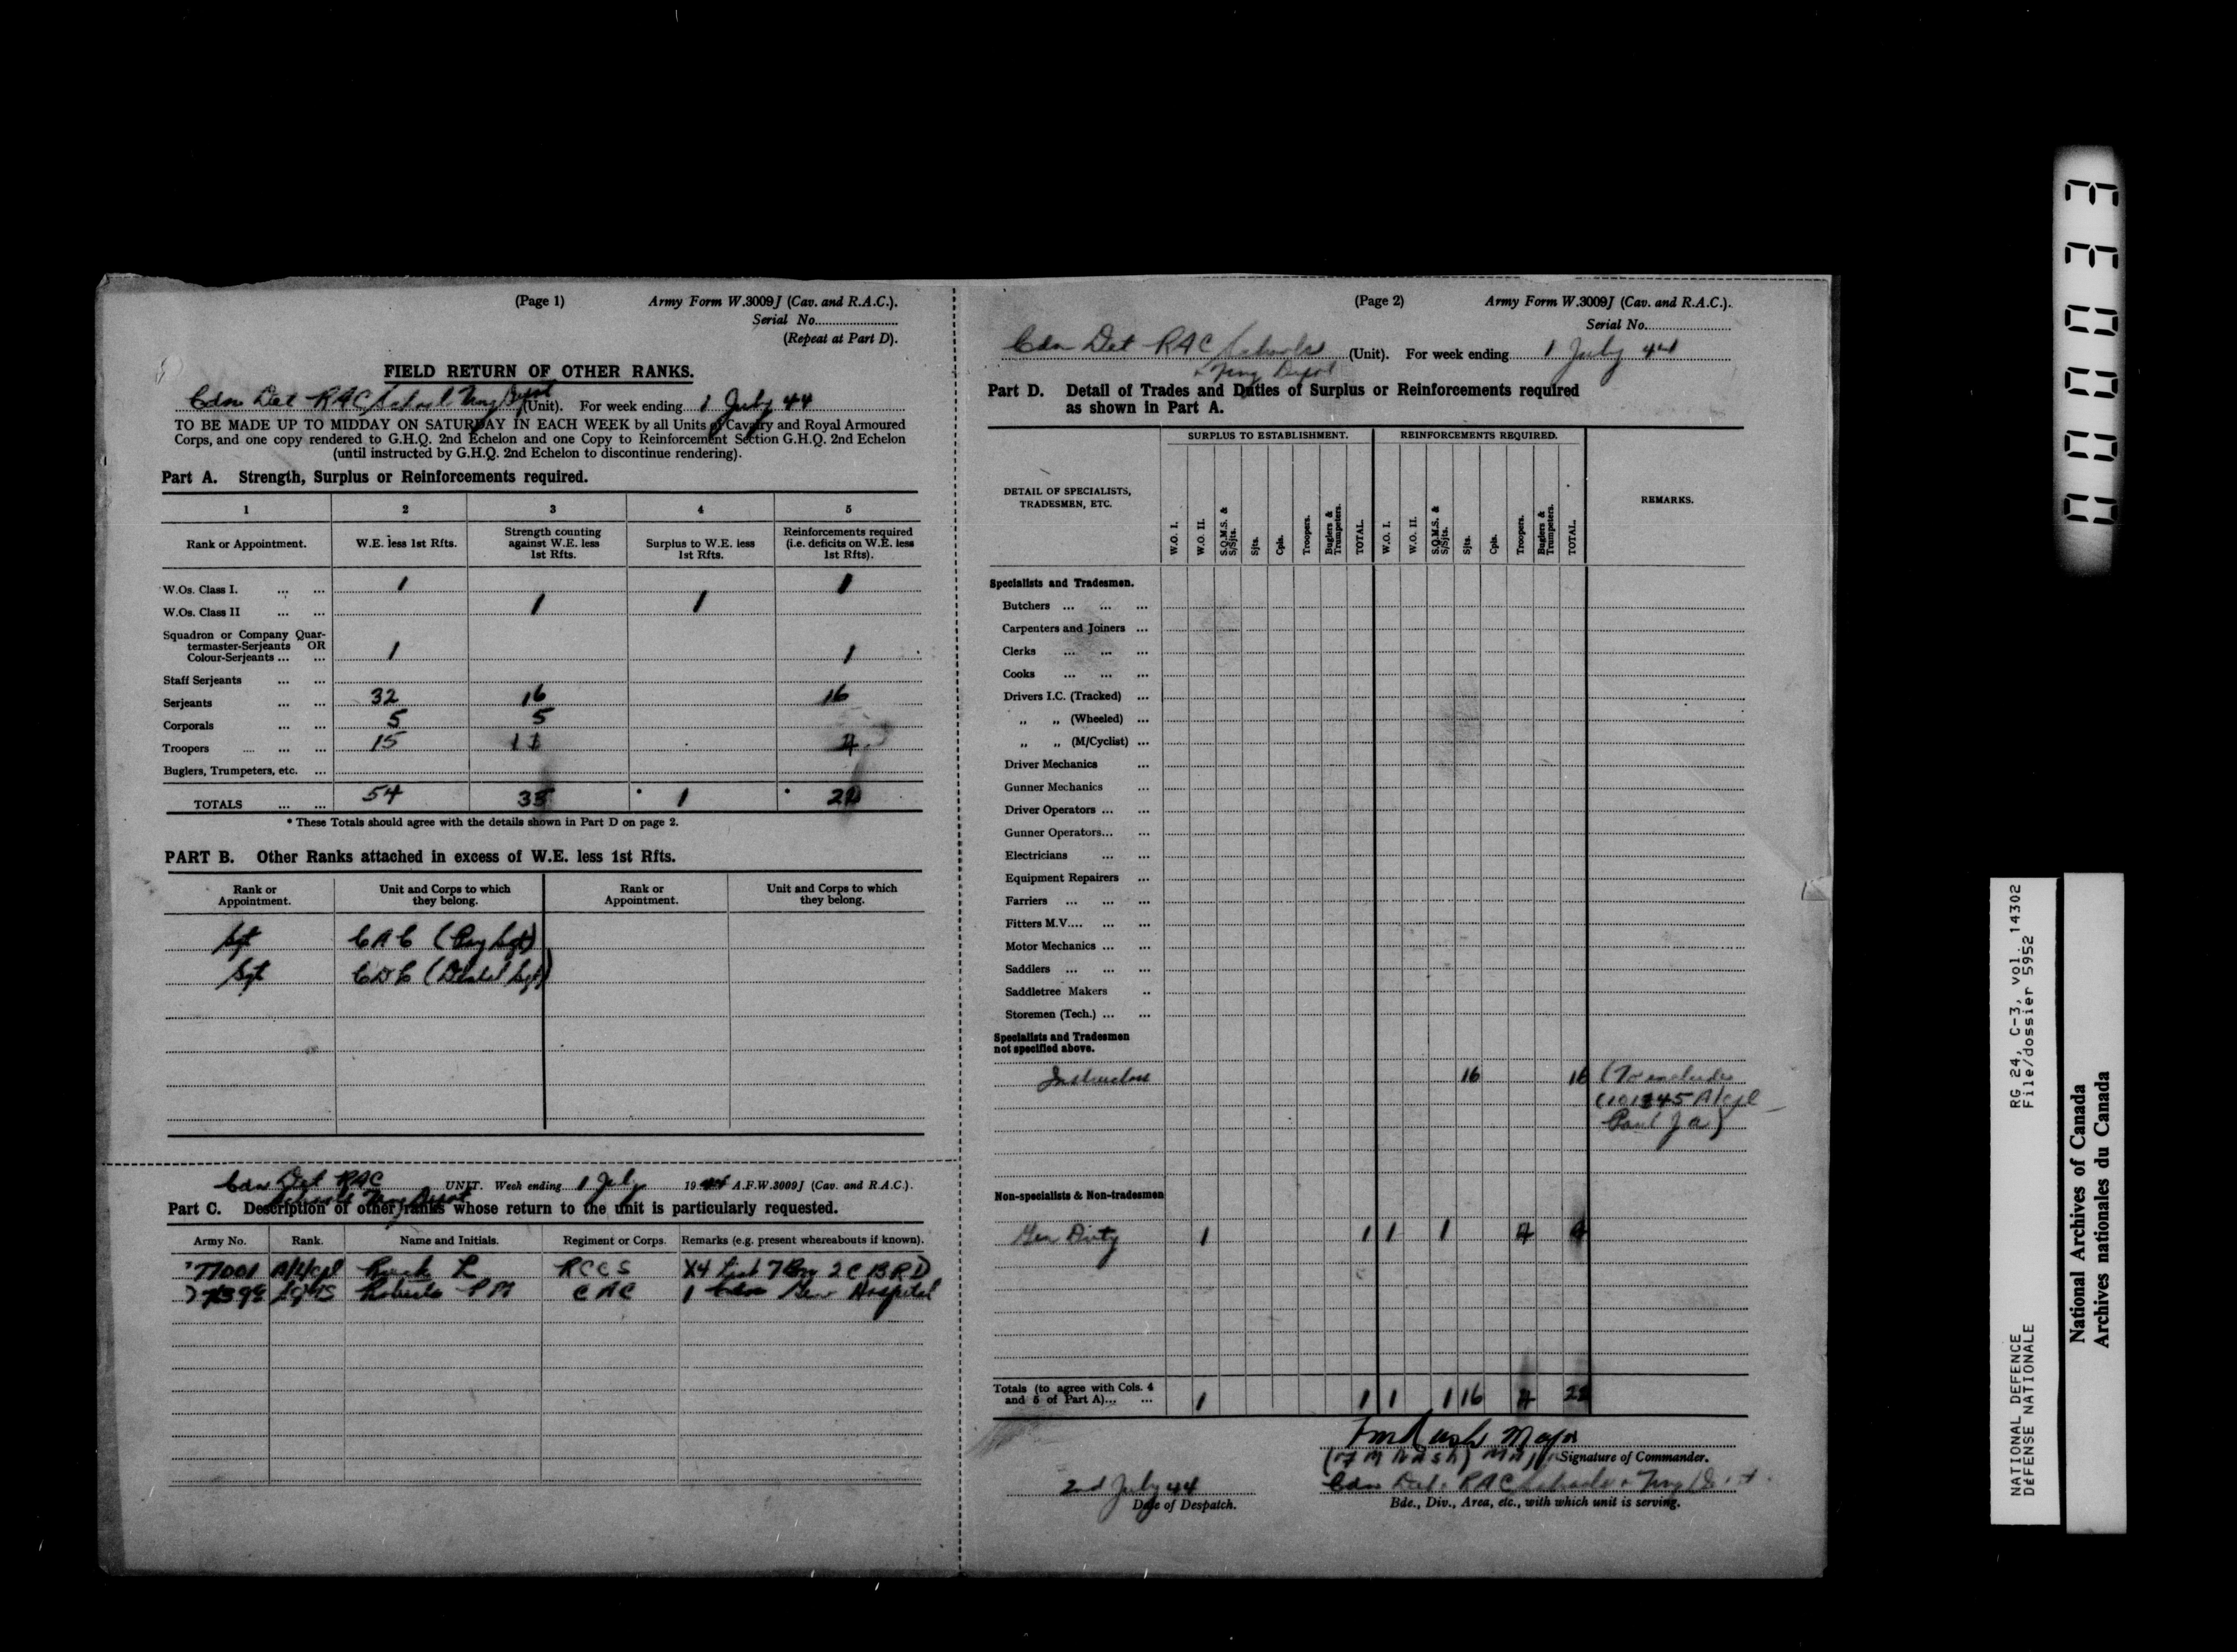 (Page 1) Army Form W.3009J (Cav. and R.A.C.).
Serial No.
(Repeat at Part D).
FIELD RETURN OF OTHER RANKS.
Cdn Det RAC School Trng Depot (Unit). For week ending 1 July 44
TO BE MADE UP TO MIDDAY ON SATURDAY IN EACH WEEK by all Units of Cavalry and Royal Armoured
Corps, and one copy rendered to G.H.Q. 2nd Echelon and one Copy to Reinforcement Section G.H.Q. 2nd Echelon
(until instructed by G.H.Q. 2nd Echelon to discontinue rendering).
Part A. Strength, Surplus or Reinforcements required.
1 2 3 4 5
Rank or Appointment. W.E. less 1st Rfts. Strength counting against W.E. less 1st Rfts. Surplus to W.E. less 1st Rfts. Reinforcements required (i.e. deficits on W.E. less 1st Rfts).
W.Os. Class I. ... ... 1 1
W.Os. Class II ... ... 1 1
Squadron or Company Quar-
termaster-Serjeants OR
Colour-Serjeants ... ... 1 1
Staff Serjeants ... ...
Serjeants ... ... 32 16 16
Corporals ... ... 5 5
Troopers ... ... ... 15 11 4
Buglers, Trumpeters, etc. ...
TOTALS ... ... 54 33 * 1 * 22
* These Totals should agree with the details shown in Part D on page 2.
PART B. Other Ranks attached in excess of W.E. less 1st Rfts.
Rank or Appointment. Unit and Corps to which they belong. Rank or Appointment. Unit and Corps to which they belong.
Sgt CAC (Pay Sgt)
Sgt CDC (Dental Sgt)
Cdn Det RAC UNIT. Week ending 1 July 1944 A.F.W.3009J (Cav. and R.A.C.).
Schools Trng Depot
Part C. Description of other ranks whose return to the unit is particularly requested.
Army No. Rank. Name and Initials. Regiment or Corps. Remarks (e.g. present whereabouts if known).
77001 A/L/Cpl RCCS X4 List 2 CBRD
Roberts CAC 1 Cdn Gen Hospital
(Page 2) Army Form W.3009J (Cav. and R.A.C.).
Serial No.
Cdn Det RAC Schools (Unit). For week ending 1 July 44
& Trng Depot
Part D. Detail of Trades and Duties of Surplus or Reinforcements required
as shown in Part A.
SURPLUS TO ESTABLISHMENT. REINFORCEMENTS REQUIRED.
DETAIL OF SPECIALISTS, TRADESMEN, ETC. W.O. I. W.O. II. S.Q.M.S. & S/Sjts. Sjts. Cpls. Troopers. Buglers & Trumpeters. TOTAL. W.O. I. W.O. II. S.Q.M.S. & S/Sjts. Sjts. Cpls. Troopers. Buglers & Trumpeters. TOTAL. REMARKS.
Specialists and Tradesmen.
Butchers ... ... ...
Carpenters and Joiners ...
Clerks ... ... ...
Cooks ... ... ...
Drivers I.C. (Tracked) ...
„ „ (Wheeled) ...
„ „ (M/Cyclist) ...
Driver Mechanics ...
Gunner Mechanics ...
Driver Operators ... ...
Gunner Operators... ...
Electricians ... ...
Equipment Repairers ...
Farriers ... ... ...
Fitters M.V.... ... ...
Motor Mechanics ... ...
Saddlers ... ... ...
Saddletree Makers ..
Storemen (Tech.) ... ...
Specialists and Tradesmen
not specified above.
Instructors 16 16 (To include
A/Cpl
Paul J A)
Non-specialists & Non-tradesmen
Gen Duty 1 1 1 1 4
Totals (to agree with Cols. 4
and 5 of Part A)... ... 1 1 1 1 16 4 22
Major
Signature of Commander.
2nd July 44 Cdn Det. RAC Schools & Trng
Date of Despatch. Bde., Div., Area, etc., with which unit is serving.
NATIONAL DEFENCE RG 24, C-3, vol. 14302
DÉFENSE NATIONALE File/dossier 5952
National Archives of Canada
Archives nationales du Canada